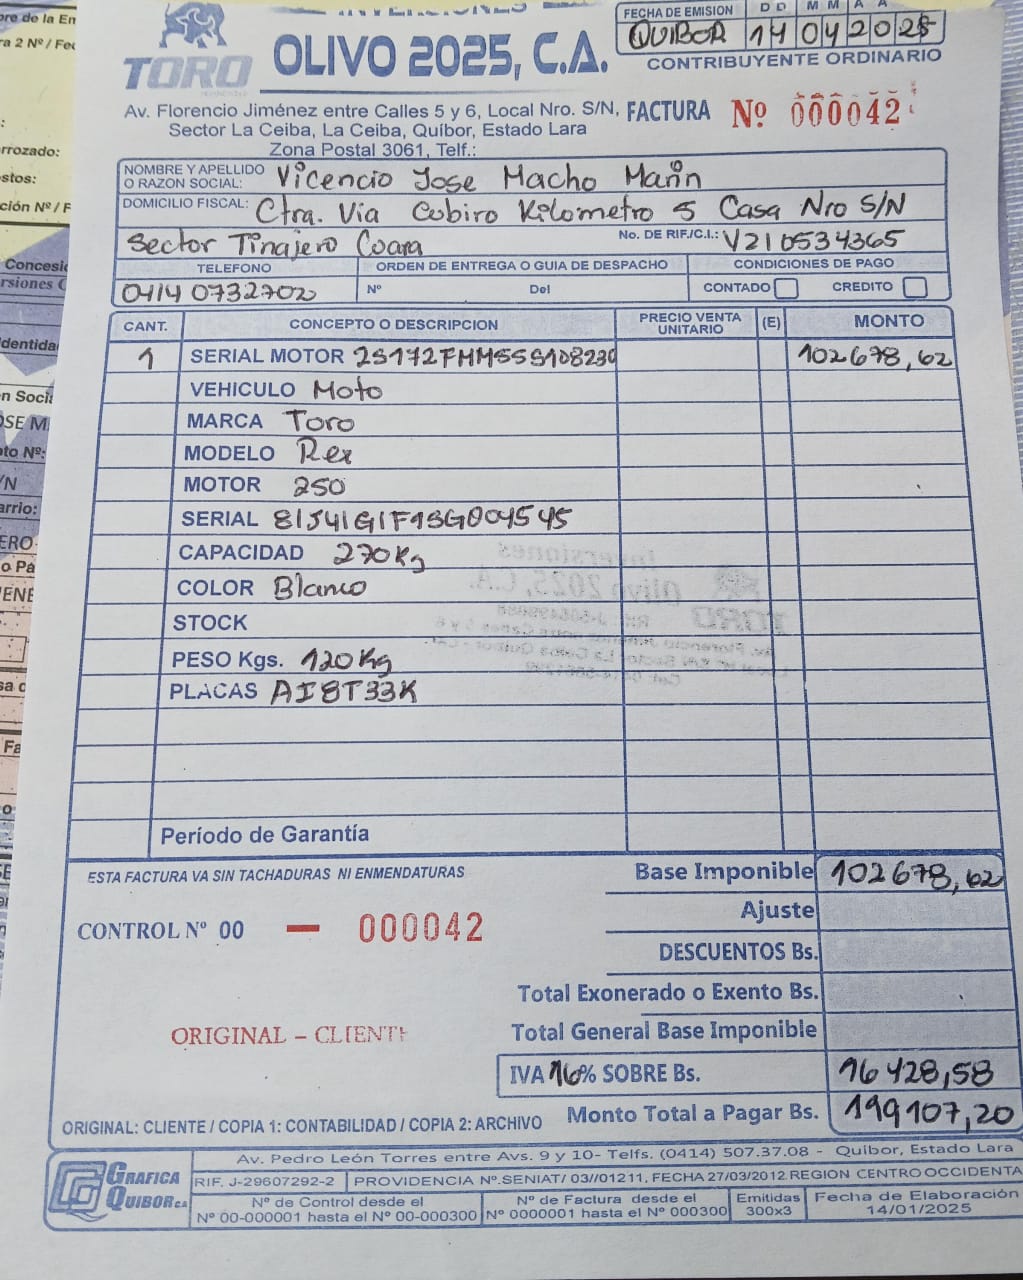 TORO
OLIVO 2025, C.A.
FECHA DE EMISION D D M M A A
QUIBOR 14 04 2025
CONTRIBUYENTE ORDINARIO
Av. Florencio Jiménez entre Calles 5 y 6, Local Nro. S/N,
Sector La Ceiba, La Ceiba, Quíbor, Estado Lara
Zona Postal 3061, Telf.:
FACTURA Nº 000042
NOMBRE Y APELLIDO O RAZON SOCIAL: Vicencio Jose Macho Marin
DOMICILIO FISCAL: Ctra. Via Cubiro Kilometro 5 Casa Nro S/N
Sector Tinajero Coara No. DE RIF./C.I.: V210534365
TELEFONO ORDEN DE ENTREGA O GUIA DE DESPACHO CONDICIONES DE PAGO
0414 0732702 Nº Del CONTADO CREDITO
CANT. CONCEPTO O DESCRIPCION PRECIO VENTA UNITARIO (E) MONTO
1 SERIAL MOTOR 2S172FMM5SS108230 102678,62
VEHICULO Moto
MARCA Toro
MODELO Rex
MOTOR 250
SERIAL 81J41G1F1SG004545
CAPACIDAD 270Kg
COLOR Blanco
STOCK
PESO Kgs. 120Kg
PLACAS AI8T33K
Período de Garantía
ESTA FACTURA VA SIN TACHADURAS NI ENMENDATURAS
Base Imponible 102678,62
Ajuste
CONTROL Nº 00 — 000042
DESCUENTOS Bs.
Total Exonerado o Exento Bs.
Total General Base Imponible
ORIGINAL – CLIENTE
IVA 16% SOBRE Bs. 16428,58
Monto Total a Pagar Bs. 199107,20
ORIGINAL: CLIENTE / COPIA 1: CONTABILIDAD / COPIA 2: ARCHIVO
GRAFICA QUIBOR C.A.
Av. Pedro León Torres entre Avs. 9 y 10- Telfs. (0414) 507.37.08 - Quibor, Estado Lara
RIF. J-29607292-2 PROVIDENCIA Nº.SENIAT/ 03//01211, FECHA 27/03/2012 REGION CENTRO OCCIDENTA
Nº de Control desde el Nº 00-000001 hasta el Nº 00-000300
Nº de Factura desde el Nº 0000001 hasta el Nº 000300
Emitidas 300x3
Fecha de Elaboración 14/01/2025